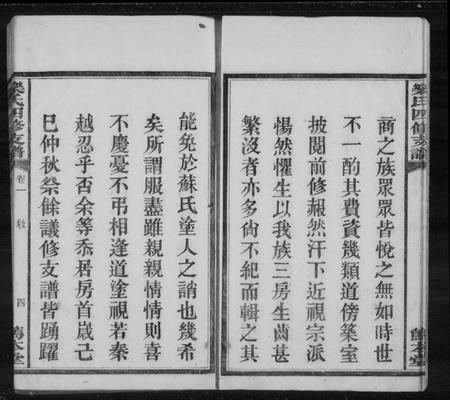 商之族眾眾皆悅之無如時世
不一酌其費資幾類道傍築室
披閱前修赧然汗下近視宗派
惕然懼生以我族三房生齒甚
繁沒者亦多尙不紀而輯之其
能免於蘇氏塗人之誚也幾希
矣所謂服盡雖親親情情則喜
不慶憂不弔相逢道塗視若秦
越忍乎否余等忝居房首歲己
巳仲秋祭餘議修支譜皆踴躍
樂氏四修支譜
卷一
敘
四